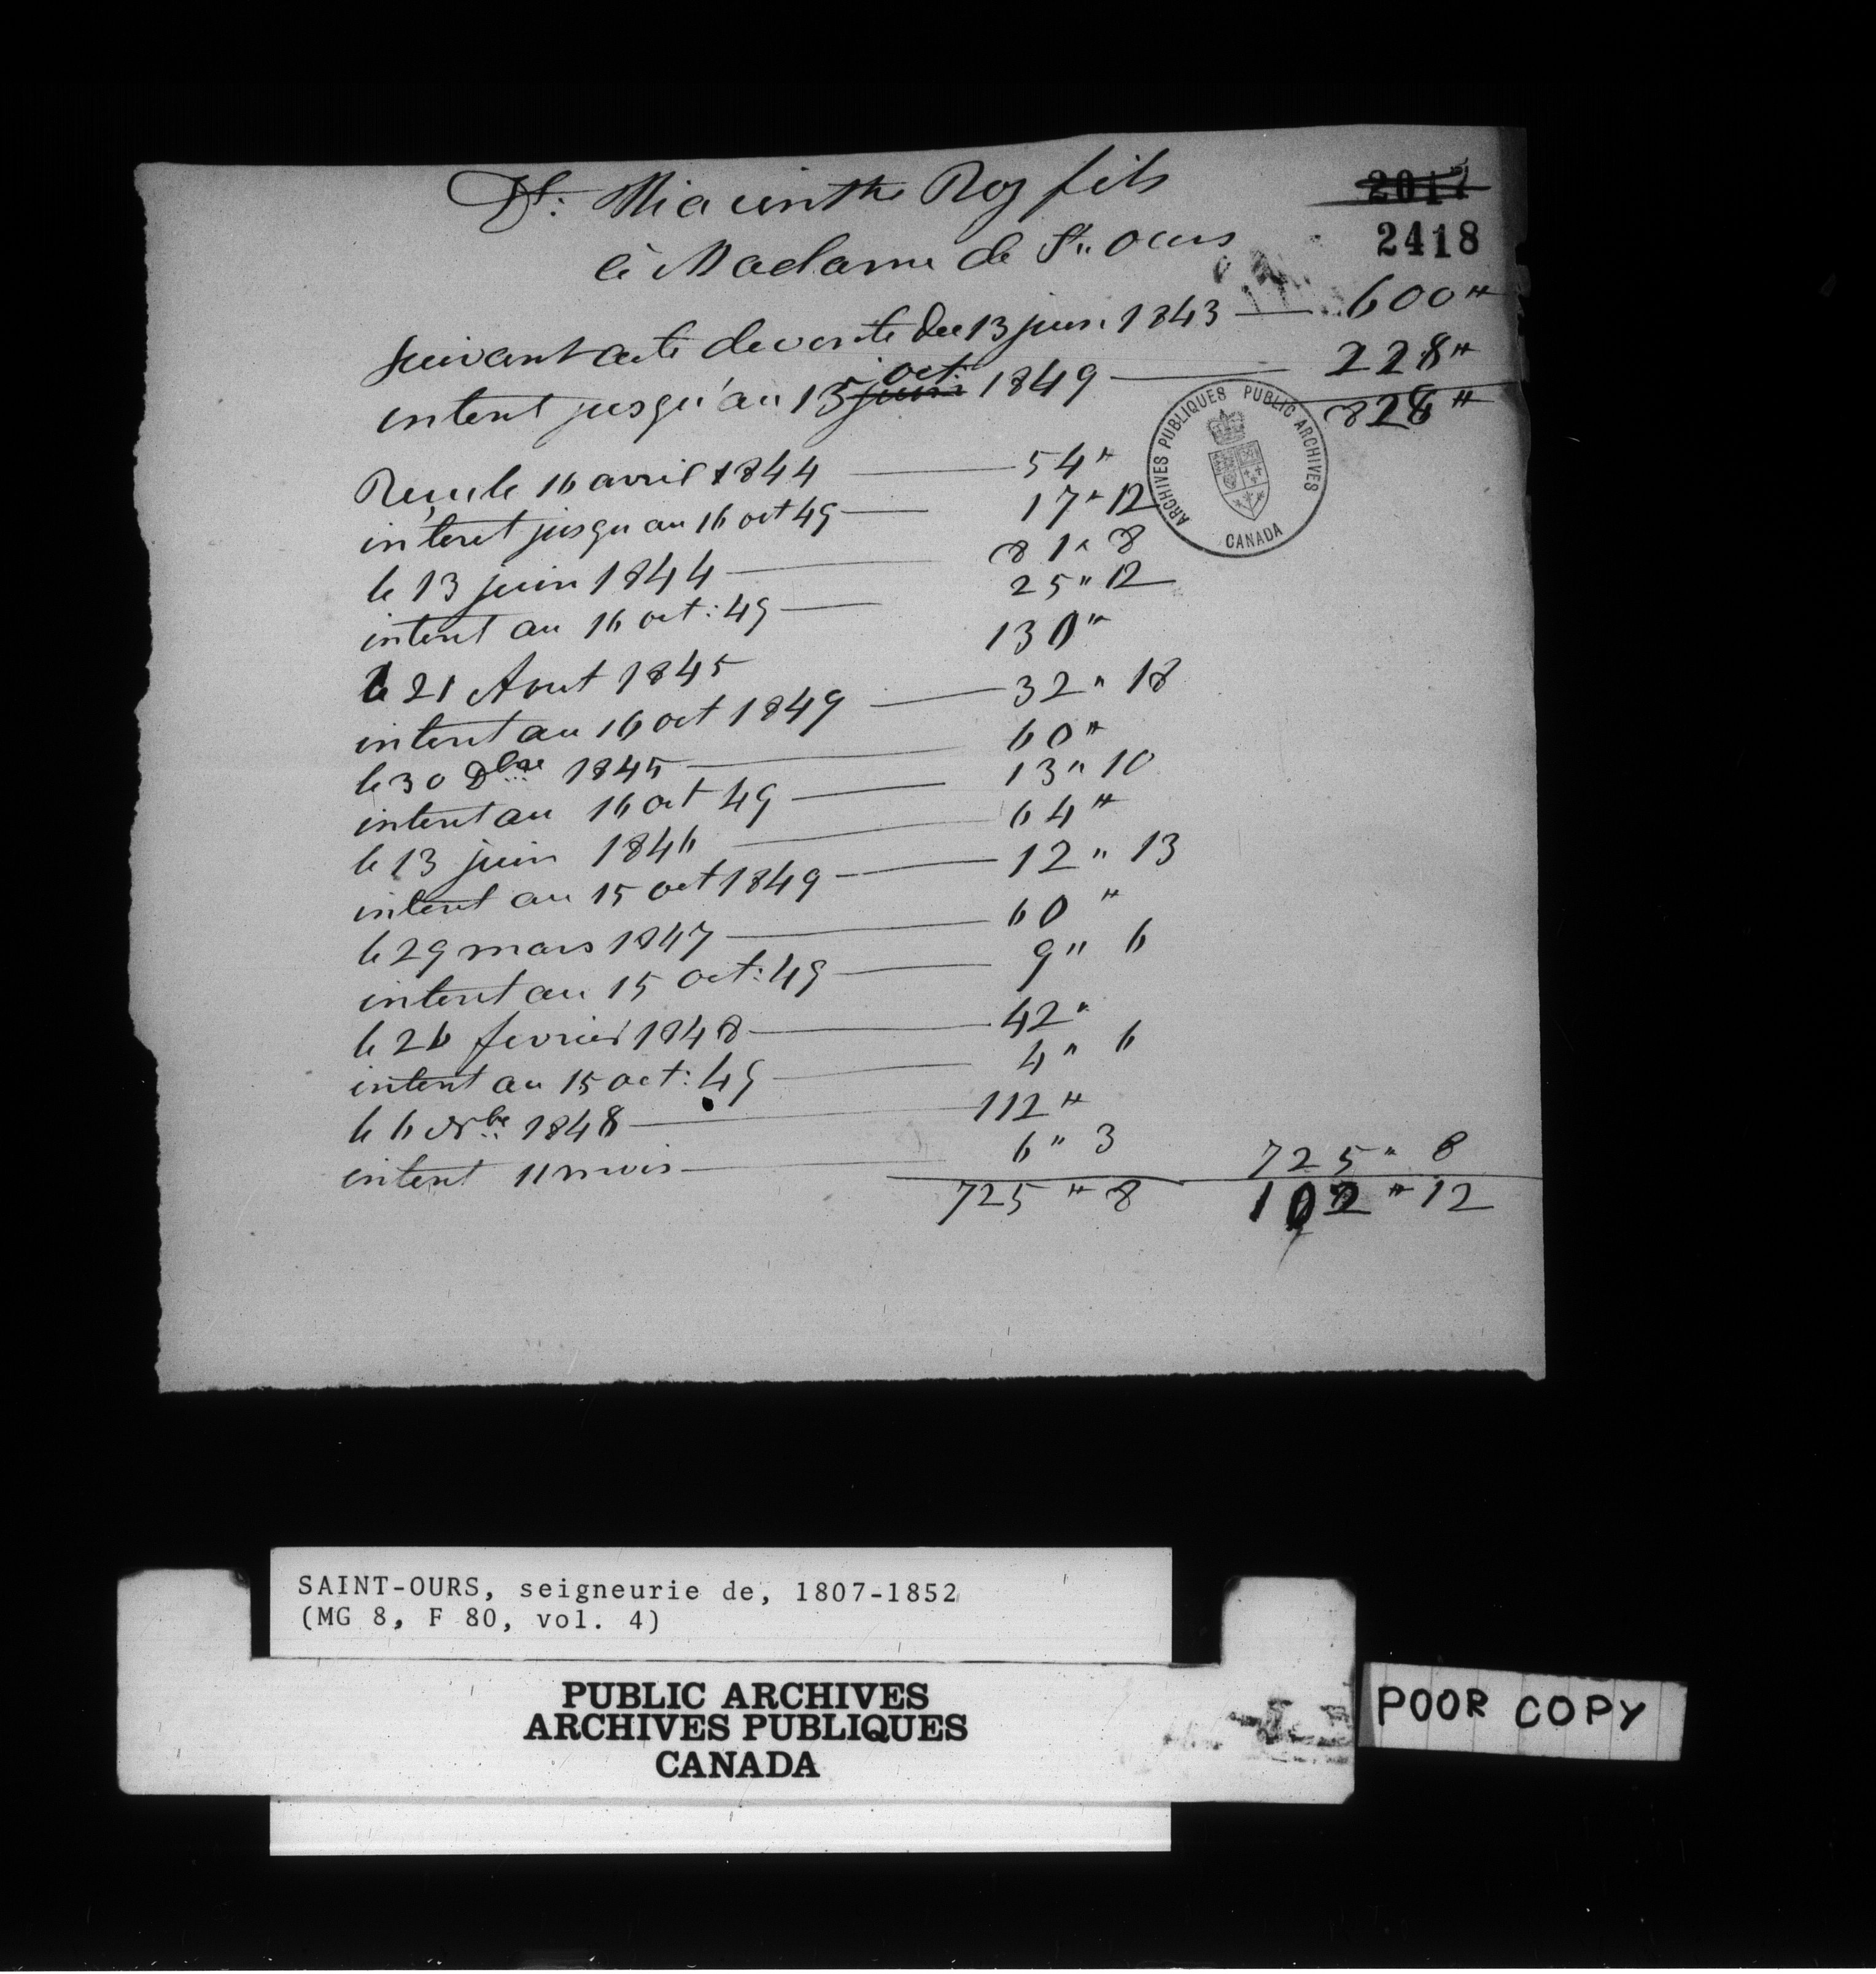 Dt: Hiacinthe Roy fils
2017
2418
à Madame de St. Ours
suivant acte de vente du 13 juin 1843 — 600"
interet jusqu'au 15 juin oct: 1849 — 228"
828"
Reçu le 16 avril 1844 — 54"
interet jusqu au 16 oct 49 — 17"12
le 13 juin 1844 — 81"8
interet au 16 oct: 49 — 25"12
le 21 Aout 1845 130"
interet au 16 oct 1849 — 32"18
le 30 Dbre 1845 — 60"
interet au 16 oct 49 — 13"10
le 13 juin 1846 — 64"
interet au 15 oct 1849 — 12"13
le 29 mars 1847 — 60"
interet au 15 oct: 49 — 9"6
le 26 fevrier 1848 — 42"
interet au 15 oct: 49 — 4"6
le 6 Nbre 1848 — 112"
interet 11 mois — 6"3 725"8
725"8 102"12
ARCHIVES PUBLIQUES PUBLIC ARCHIVES
CANADA
SAINT-OURS, seigneurie de, 1807-1852
(MG 8, F 80, vol. 4)
PUBLIC ARCHIVES
ARCHIVES PUBLIQUES
CANADA
POOR COPY